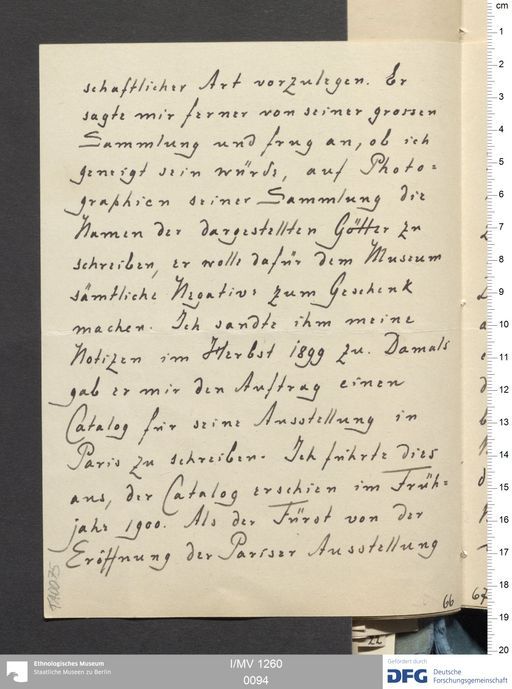 schaftlicher Art vorzulegen. Er
sagte mir ferner von seiner grossen
Sammlung und frug an, ob ich
geneigt sein würde, auf Photo=
graphien seiner Sammlung die
Namen der dargestellten Götter zu
schreiben, er wolle dafür dem Museum
sämtliche Negative zum Geschenk
machen. Ich sandte ihm meine
Notizen im Herbst 1899 zu. Damals
gab er mir den Auftrag einen
Catalog für seine Ausstellung in
Paris zu schreiben. Ich führte dies
aus, der Catalog erschien im Früh=
jahr 1900. Als der Fürst von der
Eröffnung der Pariser Ausstellung
66
67
22
cm
1
2
3
4
5
6
7
8
9
10
11
12
13
14
15
16
17
18
19
20
Ethnologisches Museum
Staatliche Museen zu Berlin
I/MV 1260
0094
Gefördert durch
DFG Deutsche
Forschungsgemeinschaft